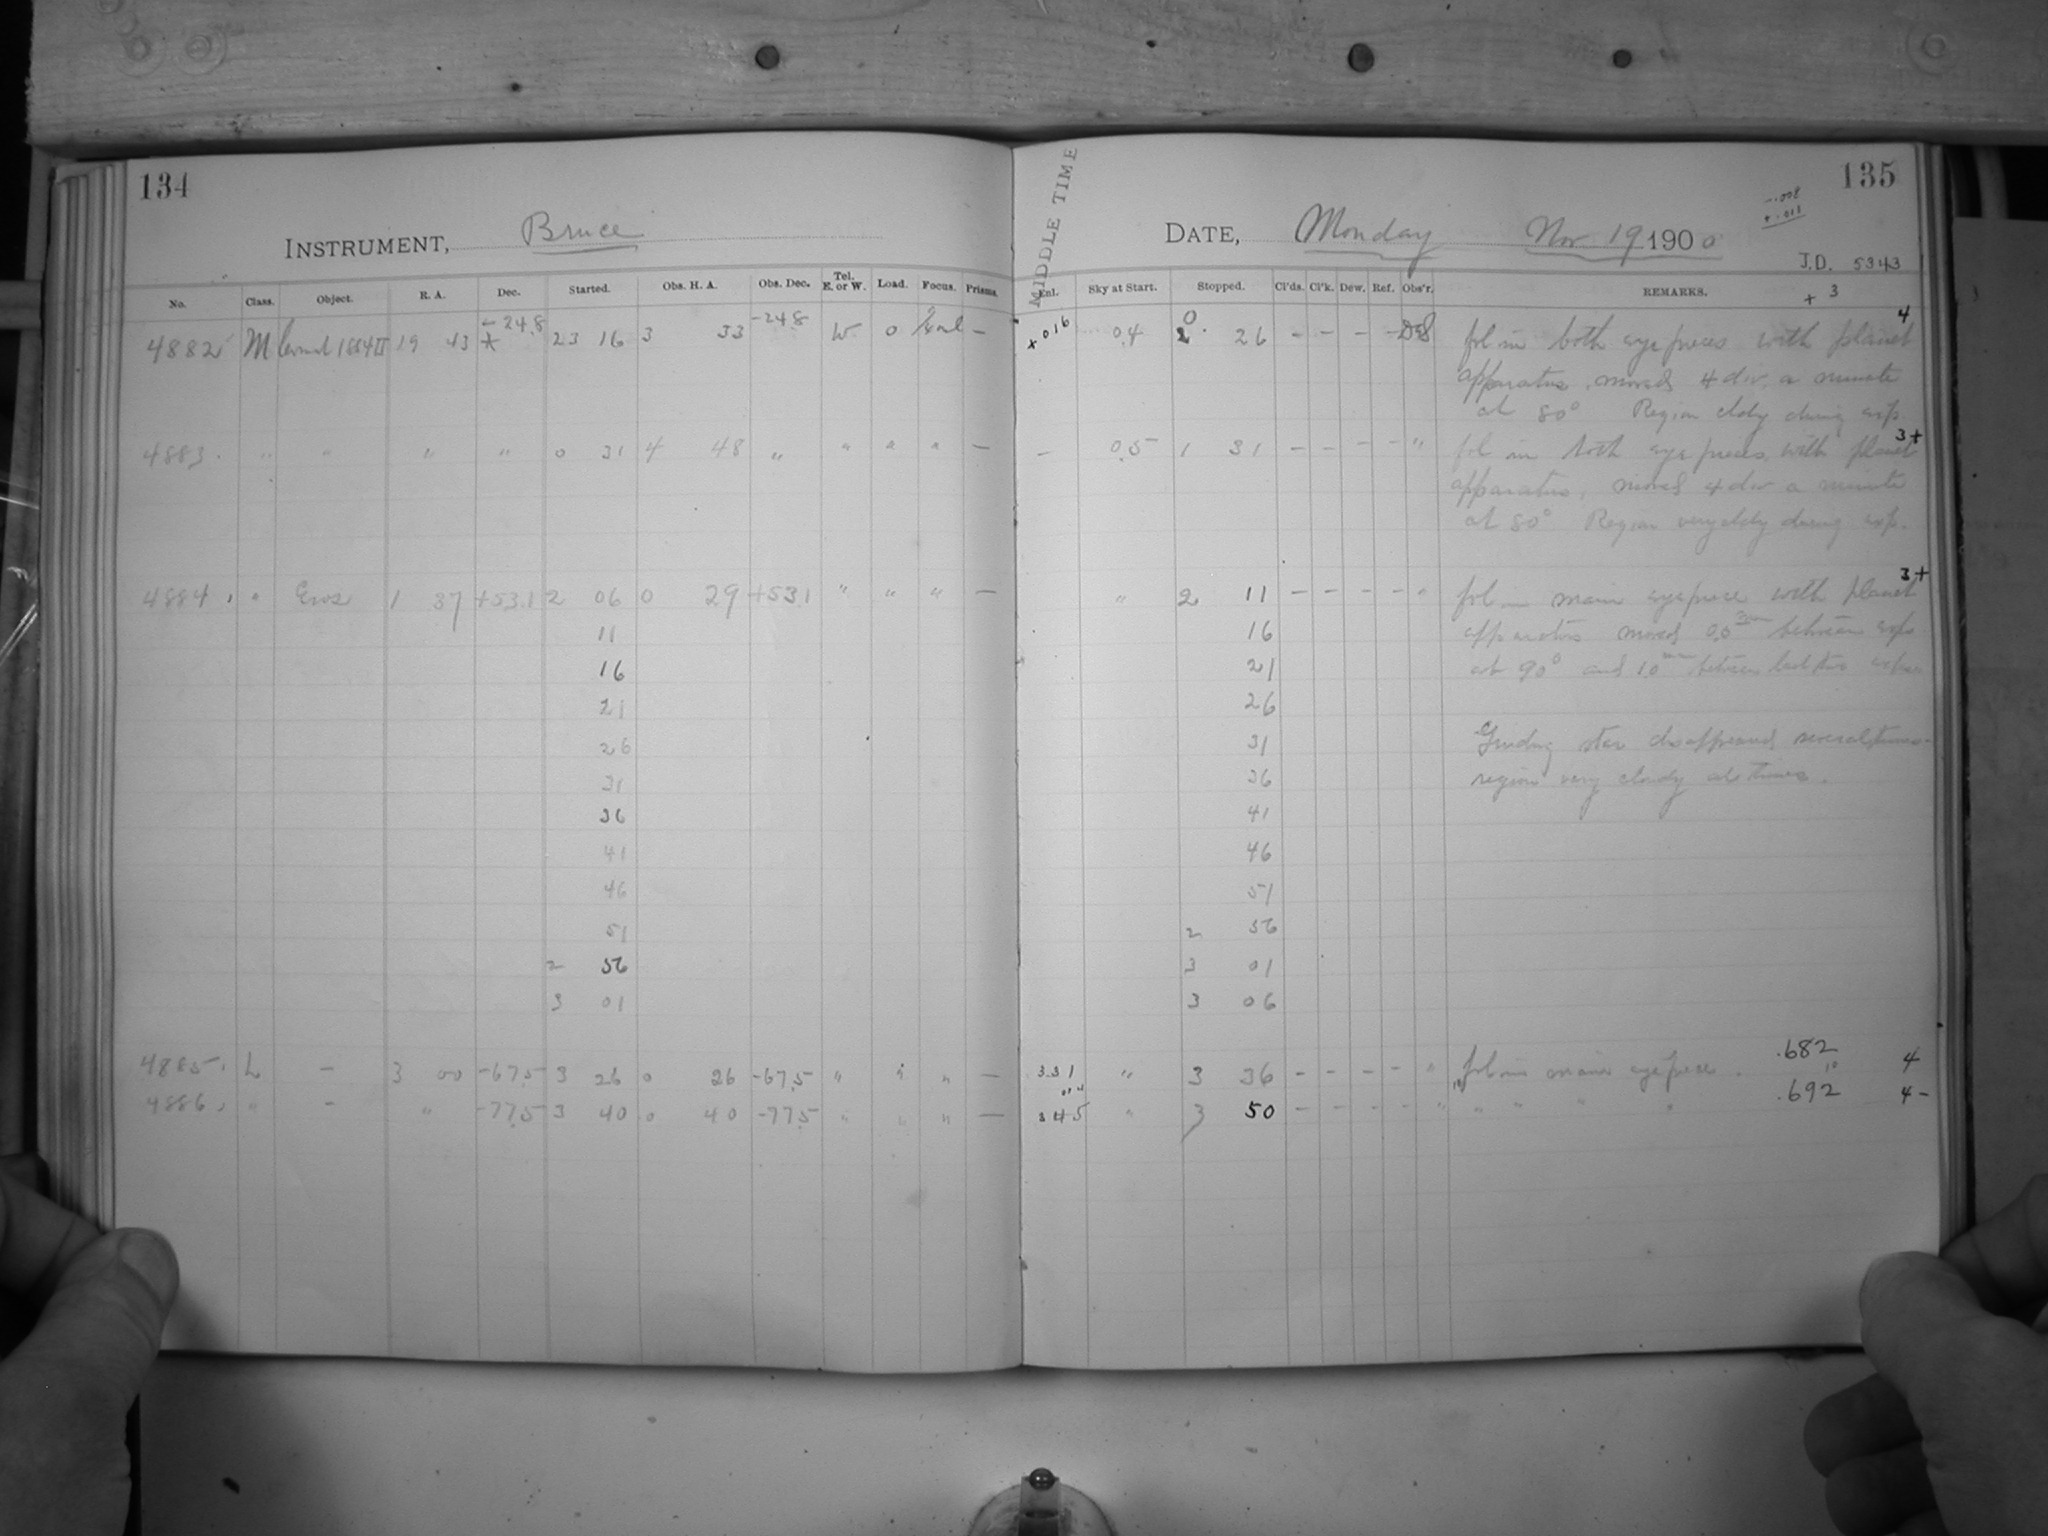 134
INSTRUMENT, Bruce
No. Class. Object. R. A. Dec. Started. Obs. H. A. Obs. Dec. Tel. E. or W. Load. Focus. Prisms.
4882 M 1884 II 19 43 -24.8 23 16 3 33 -24.8 W 0 —
4883 " " " " 0 31 4 48 " " " " —
4884 " Eros 1 37 +53.1 2 06 0 29 +53.1 " " " —
11
16
21
26
31
36
41
46
51
2 56
3 01
4885 L — 3 00 -67.5 3 26 0 26 -67.5 " " " —
4886 " — " -77.5 3 40 0 40 -77.5 " " " —
135
-.008
+.011
MIDDLE TIME
DATE, Monday Nov 19 1900
J.D. 5343
+ 3
Enl. Sky at Start. Stopped. Cl'ds. Cl'k. Dew. Ref. Obs'r. REMARKS.
+016 0.4 0 26 — — — — fol in both eyepieces with planet 4
apparatus. moved 4 div. a minute
at 80° Region cldy during exp.
— 0.5 1 31 — — — — " fol in both eyepieces with planet 3+
apparatus, moved 4 div a minute
at 80° Region very cldy during exp.
" 2 11 — — — — " fol in main eyepiece with planet 3+
16 apparatus moved between exp
21 at 90° and between last two
26
31 Guiding star disappeared several times
36 region very cloudy at times.
41
46
51
2 56
3 01
3 06
331 " 3 36 — — — — " fol in main eyepiece. .682 4
10
345 " 3 50 — — — — " " " " " .692 4-